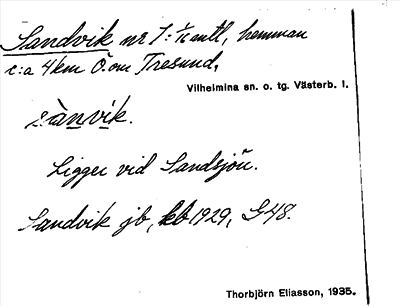 Sandvik nr 1: 1/16 mtl, hemman
c:a 4 km Ö. om Tresund,
Vilhelmina sn. o. tg. Västerb. l.
s:ànvík.
Ligger vid Sandsjön.
Sandvik jb, kb 1929, G48.
Thorbjörn Eliasson, 1935.